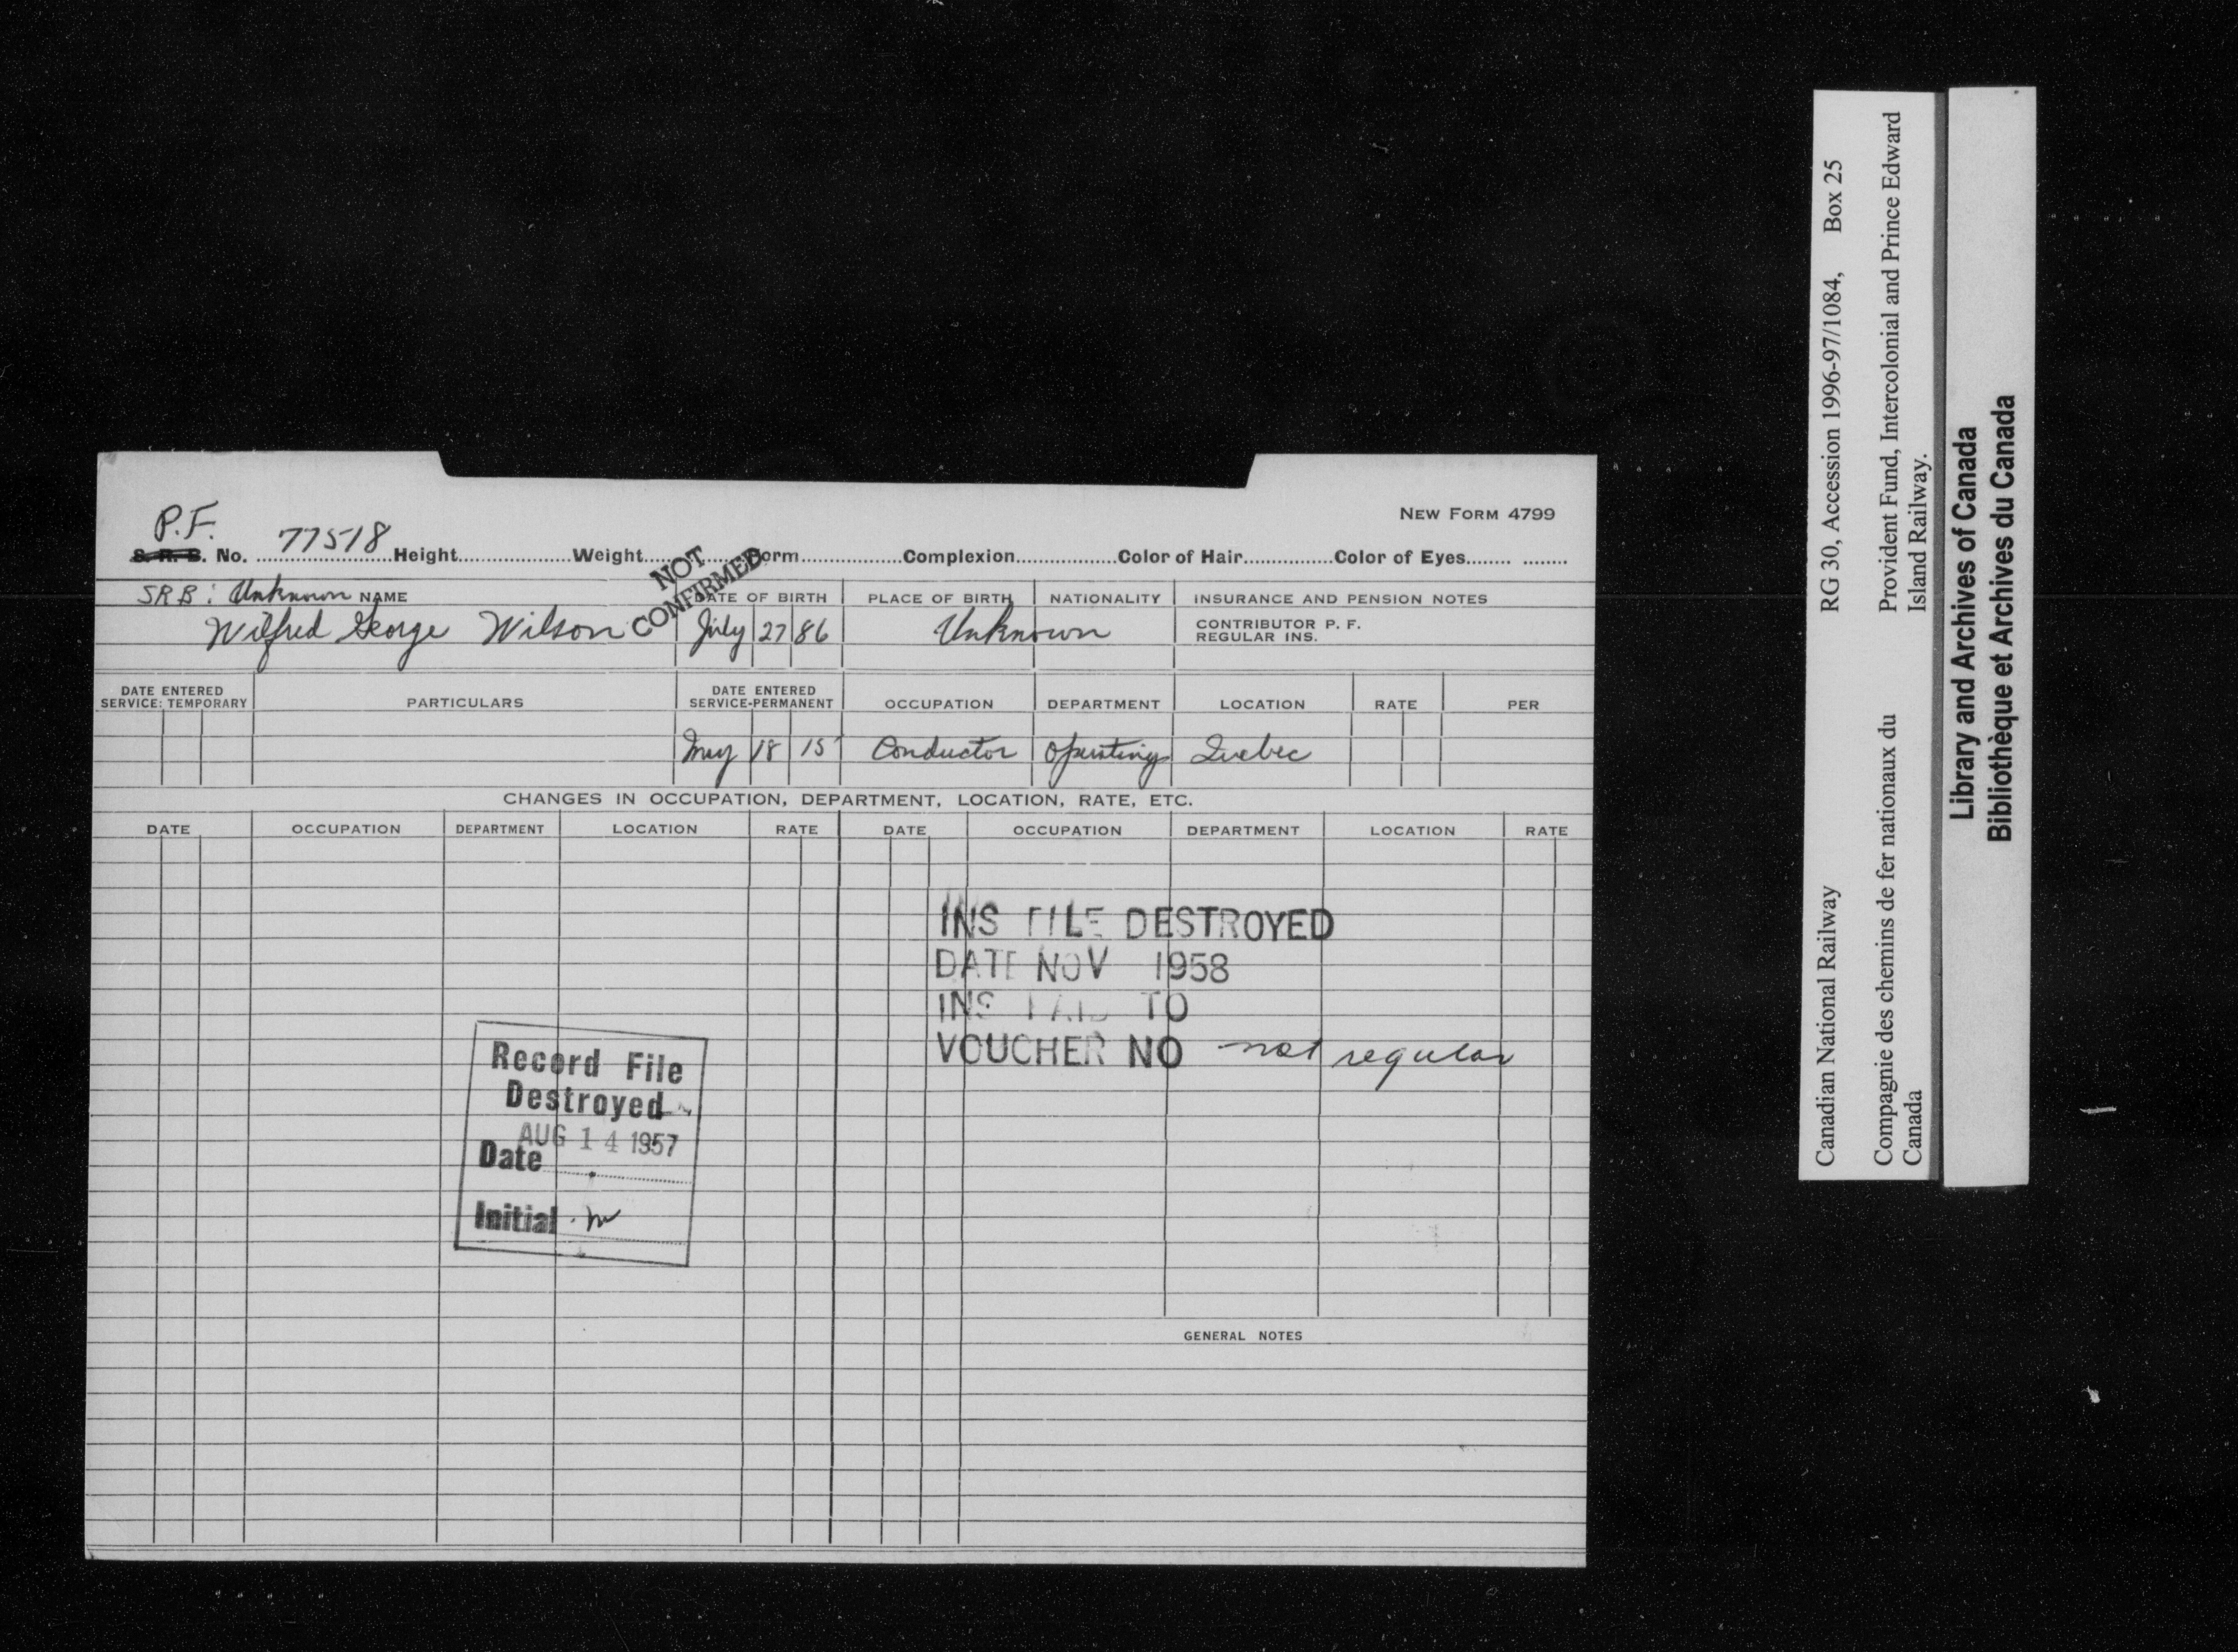 NEW FORM 4799
P.F.
S. R. B. No. 77518 Height Weight Form Complexion Color of Hair Color of Eyes
NOT CONFIRMED
SRB: Unknown NAME DATE OF BIRTH PLACE OF BIRTH NATIONALITY INSURANCE AND PENSION NOTES
Wilfred George Wilson July 27 86 Unknown CONTRIBUTOR P. F.
REGULAR INS.
DATE ENTERED SERVICE: TEMPORARY PARTICULARS DATE ENTERED SERVICE-PERMANENT OCCUPATION DEPARTMENT LOCATION RATE PER
May 18 15 Conductor Operating Quebec
CHANGES IN OCCUPATION, DEPARTMENT, LOCATION, RATE, ETC.
DATE OCCUPATION DEPARTMENT LOCATION RATE DATE OCCUPATION DEPARTMENT LOCATION RATE
INS FILE DESTROYED
DATE NOV 1958
INS PAID TO
VOUCHER NO not regular
Record File
Destroyed
AUG 14 1957
Date
Initial
GENERAL NOTES
Canadian National Railway RG 30, Accession 1996-97/1084, Box 25
Compagnie des chemins de fer nationaux du Canada
Provident Fund, Intercolonial and Prince Edward Island Railway.
Library and Archives of Canada
Bibliothèque et Archives du Canada